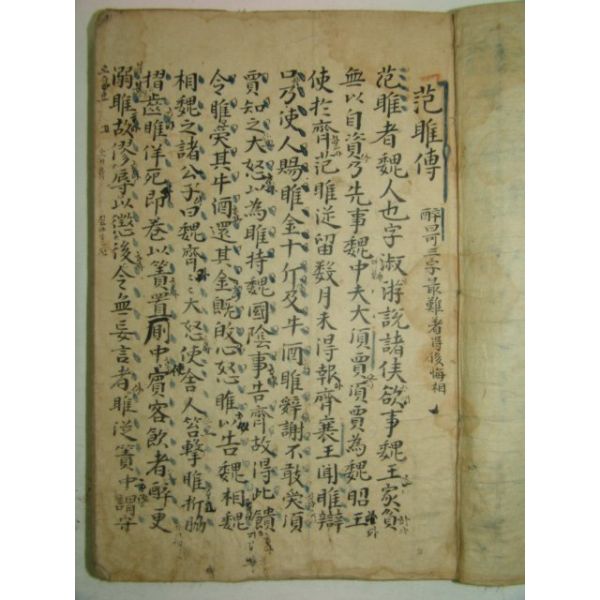 范睢傳
范睢者魏人也字淑游說諸侯欲事魏王家貧
無以自資乃先事魏中大夫須賈須賈為魏昭王
使於齊范睢從留数月未得報齊襄王聞睢辯
口乃使人賜睢金十斤及牛酒睢辭謝不敢受須
賈知之大怒以為睢持魏國陰事告齊故得此饋
令睢受其牛酒還其金既敀心怒睢以告魏相魏
相魏之諸公子曰魏齊大怒使舍人笞擊睢折脇
摺齒睢佯死即卷以簀置厠中賓客飲者醉更
溺睢故僇辱以懲後令無妄言者睢從簀中謂守